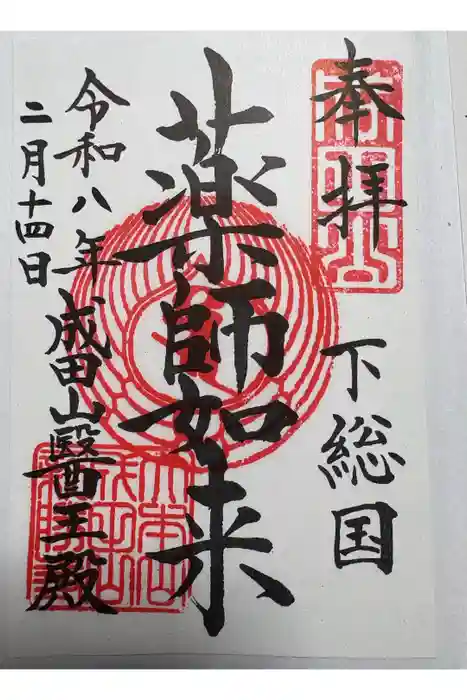 奉拝
下総国
薬師如来
令和八年
二月十四日
成田山醫王殿